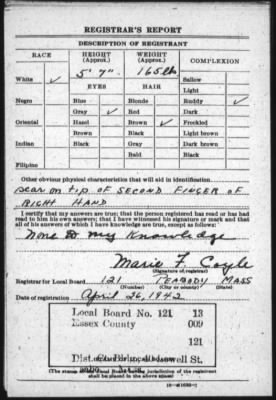 REGISTRAR'S REPORT
DESCRIPTION OF REGISTRANT
RACE HEIGHT (Approx.) WEIGHT (Approx.) COMPLEXION
5' 7" 165 lbs
White ✓ EYES HAIR Sallow
Light
Negro Blue Blonde Ruddy ✓
Gray ✓ Red Dark
Oriental Hazel Brown ✓ Freckled
Brown Black Light brown
Indian Black Gray Dark brown
Bald Black
Filipino
Other obvious physical characteristics that will aid in identification
SCAR ON TIP OF SECOND FINGER OF
RIGHT HAND
I certify that my answers are true; that the person registered has read or has had
read to him his own answers; that I have witnessed his signature or mark and that
all of his answers of which I have knowledge are true, except as follows:
None to my Knowledge
Marie F. Coyle
(Signature of registrar)
Registrar for Local Board 121 PEABODY MASS
(Number) (City or county)
Date of registration April 26, 1942
Local Board No. 121 13
Essex County 009
121
Lowell St.
(The stamp of the Local Board having jurisdiction of the registrant
shall be placed in the above space.)